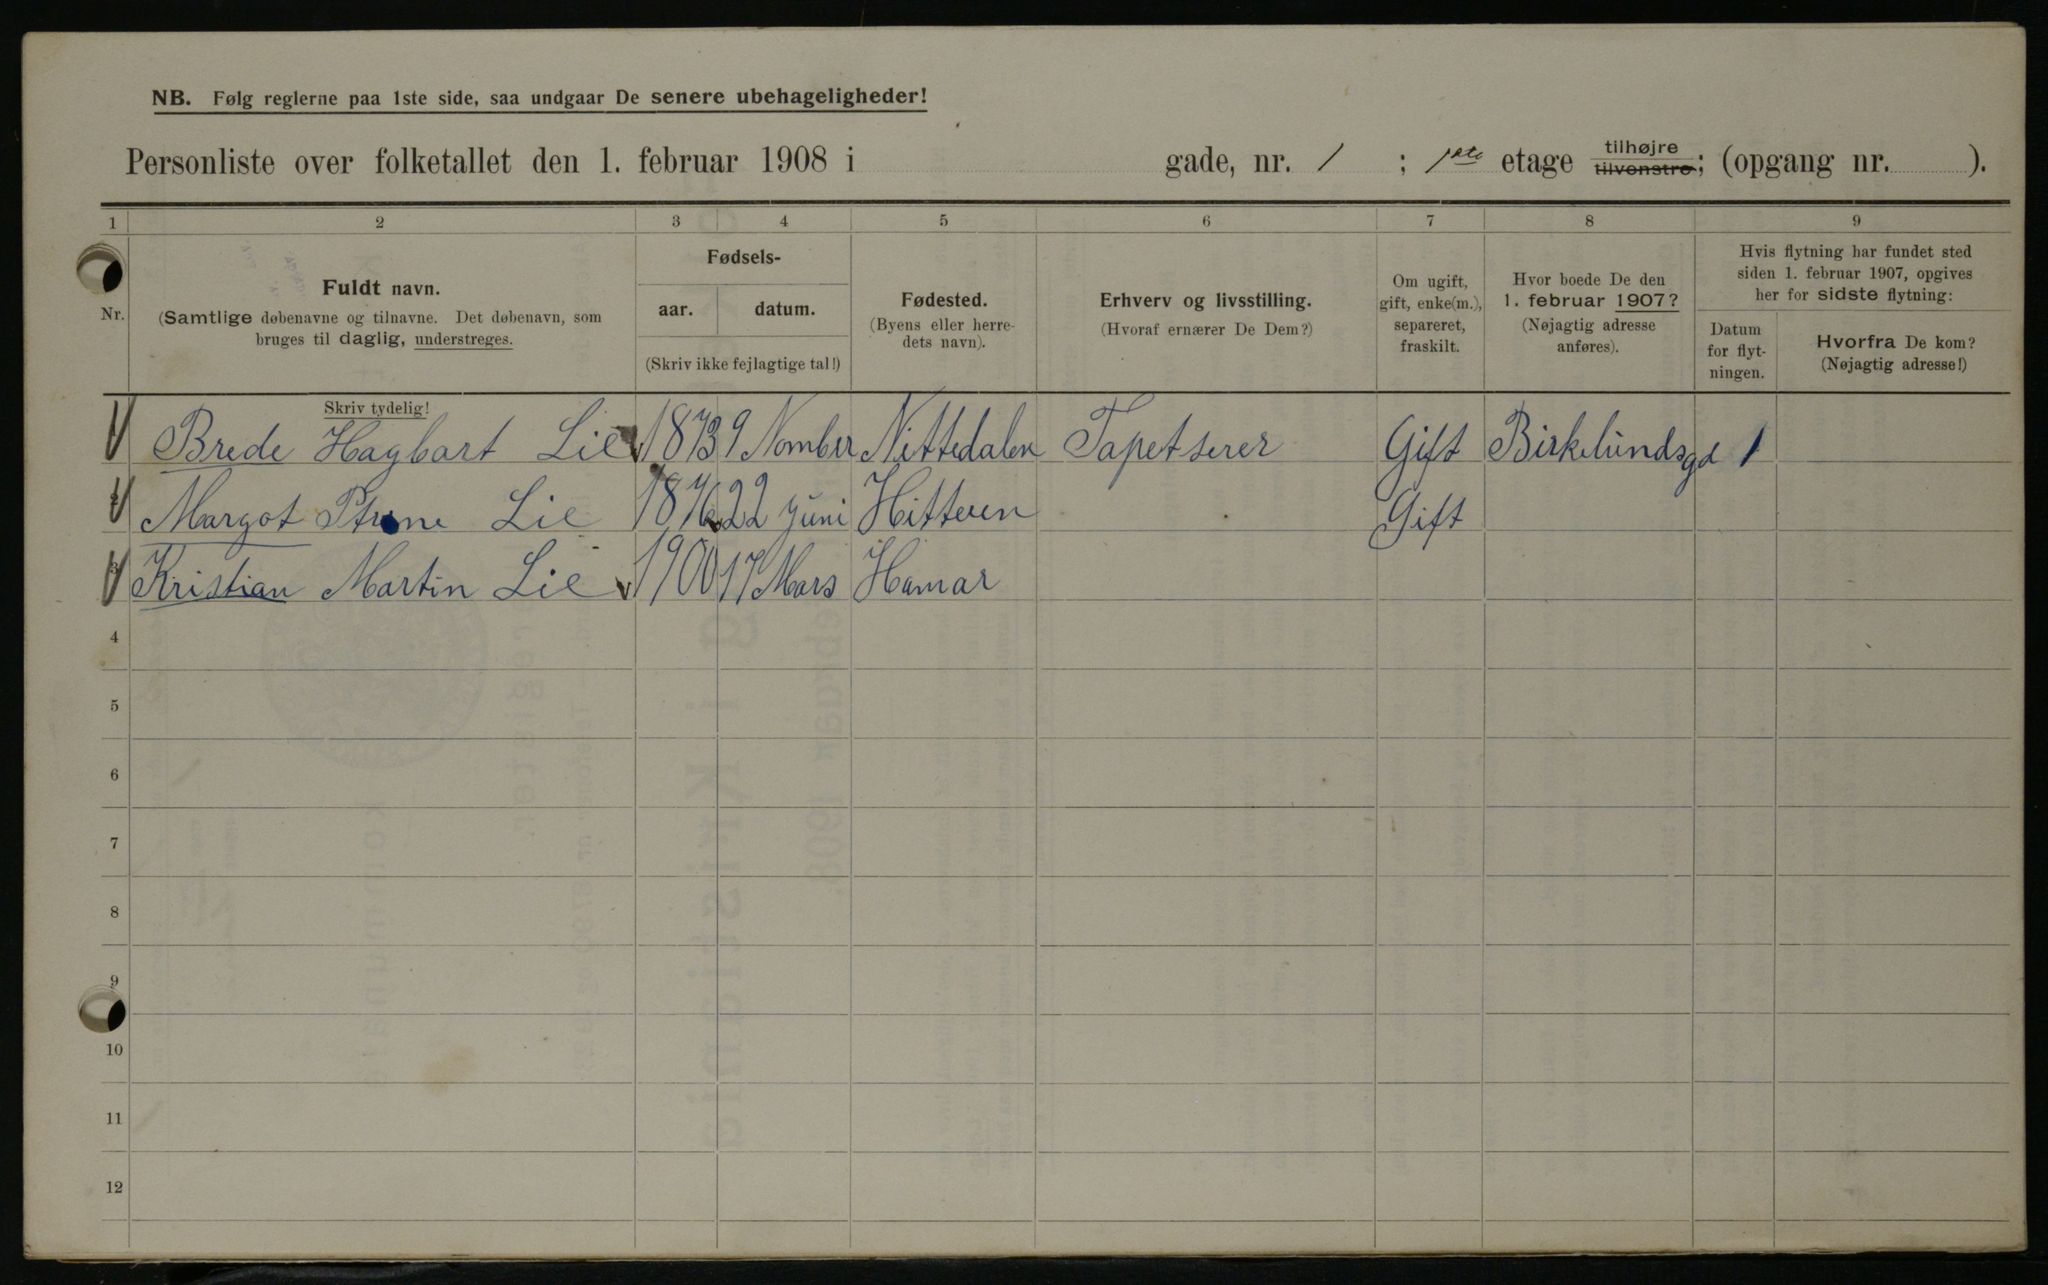 NB. Følg reglerne paa 1ste side, saa undgaar De senere ubehageligheder!
Personliste over folketallet den 1. februar 1908 i gade, nr. 1 ; 1ste etage tilhøjre tilvenstre; (opgang nr. ).
1 2 3 4 5 6 7 8 9
Nr.
Fuldt navn.
(Samtlige døbenavne og tilnavne. Det døbenavn, som
bruges til daglig, understreges.
Skriv tydelig!
Fødsels-
aar. datum.
(Skriv ikke fejlagtige tal!)
Fødested.
(Byens eller herre-
dets navn).
Erhverv og livsstilling.
(Hvoraf ernærer De Dem?)
Om ugift,
gift, enke(m.),
separeret,
fraskilt.
Hvor boede De den
1. februar 1907?
(Nøjagtig adresse
anføres).
Hvis flytning har fundet sted
siden 1. februar 1907, opgives
her for sidste flytning:
Datum
for flyt-
ningen.
Hvorfra De kom?
(Nøjagtig adresse!)
Brede Hagbart Lie 1873 9 Nomber Nittedalen Tapetserer Gift Birkelundsgd 1
2 Margot Lie 1876 22 juni Hitteren Gift
3 Kristian Martin Lie 1900 17 Mars Hamar
4
5
6
7
8
9
10
11
12